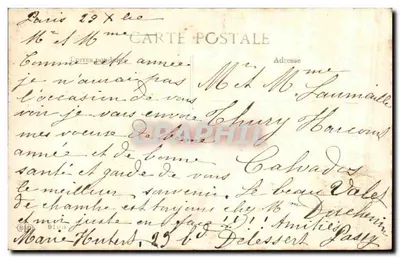 Paris 29 Xbre
Mr et Mme
CARTE POSTALE
Adresse
Comme cette année
je n'aurai pas
l'occasion de vous
voir je vous envoie
mes voeux de bonne
année et de bonne
santé et garde de vous
le meilleur souvenir. Le beau Valet
de chambre est toujours chez Mr
et moi juste en face !!)!! Amitiés
Marie Hubert, 29 bd Delessert Passy
Mr et Mme Laumaille
Thury Harcourt
Calvados
CPAPHIL